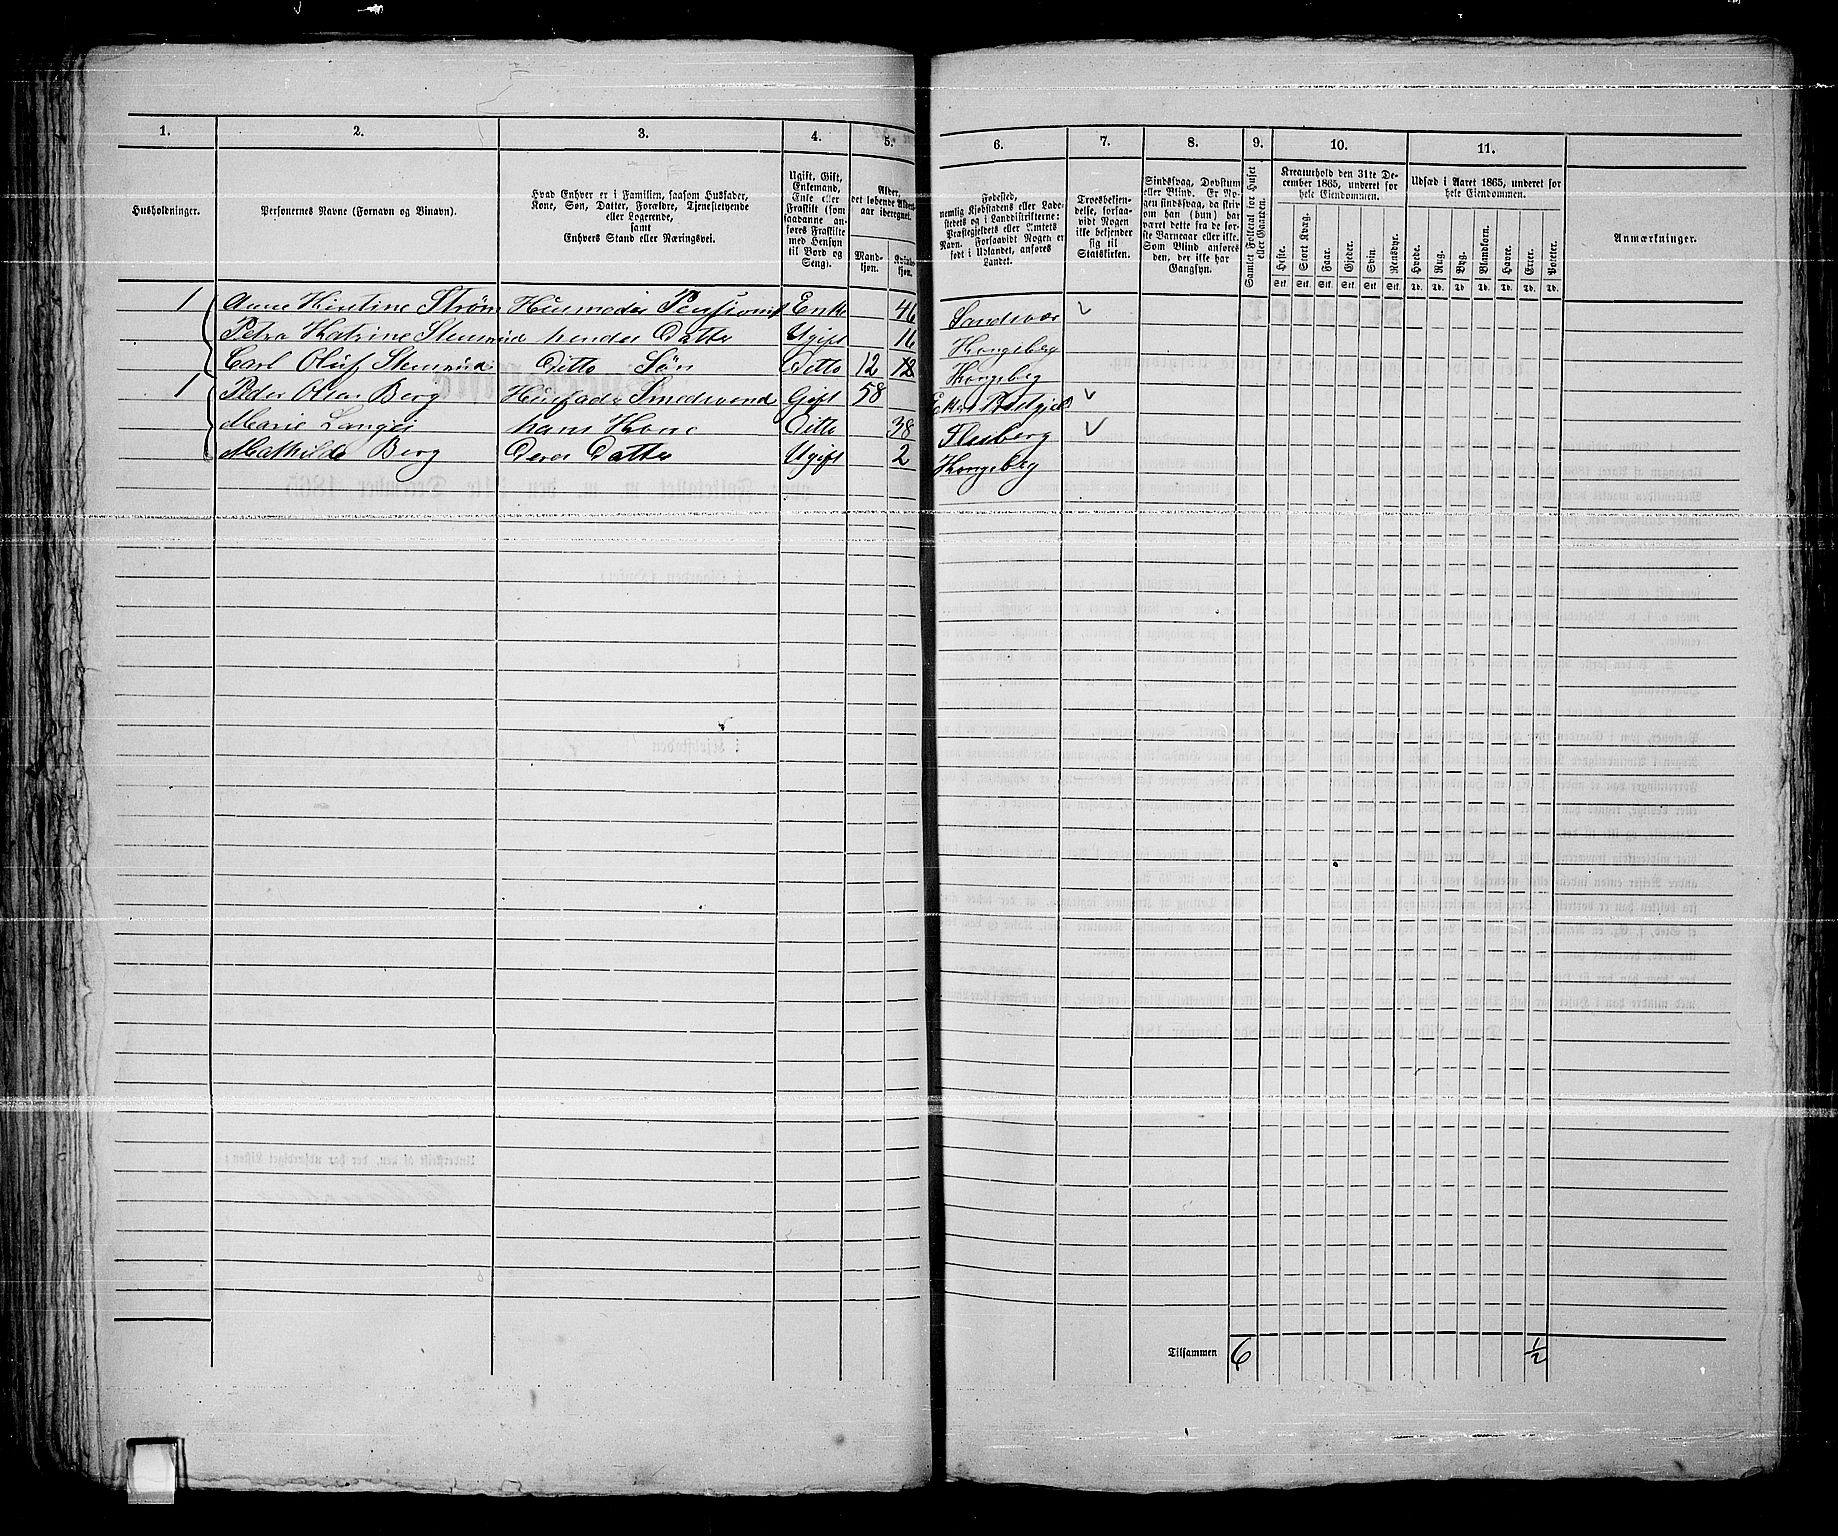 1.
2.
3.
4.
5.
6.
7.
8.
9.
10.
11.
Husholdninger.
Personernes Navne (Fornavn og Binavn).
Hvad Enhver er i Familien, saasom Husfader,
Kone, Søn, Datter, Forældre, Tjenestetyende
eller Logerende,
samt
Enhvers Stand eller Næringsvei.
Ugift, Gift,
Enkemand,
Enke eller
Fraskilt (som
saadanne an-
føres Fraskilte
med Hensyn
til Bord og
Seng).
Alder,
det løbende Alders-
aar iberegnet.
Mand-
kjøn.
Kvinde-
kjøn.
Fødested,
nemlig Kjøbstadens eller Lade-
stedets og i Landdistrikterne:
Præstegjeldets eller Amtets
Navn. Forsaavidt Nogen er
født i Udlandet, anføres
Landet.
Troesbekjen-
delse, forsaa-
vidt Nogen
ikke bekjender
sig til
Statskirken.
Sindssvag, Døvstum
eller Blind. Er No-
gen sindssvag, da skriv
om han (hun) har
været dette fra de før-
ste Barneaar eller ikke.
Som Blind anføres
den, der ikke har
Gangsyn.
Samlet Folketal for Huset
eller Gaarden.
Kreaturhold den 31te De-
cember 1865, underet for
hele Eiendommen.
Heste.
Stort Kvæg.
Faar.
Gjeder.
Svin.
Rensdyr.
Stk. Stk. Stk. Stk. Stk. Stk.
Udsæd i Aaret 1865, underet for
hele Eiendommen.
Hvede.
Rug.
Byg.
Blandkorn.
Havre.
Erter.
Poteter.
Td. Td. Td. Td. Td. Td. Td.
Anmærkninger.
1 Anne Kirstine Strøm Huusmoder Pensionist Enke 46 Sandsvær
Petra Katrine Stensrud hendes Datter Ugift 16 Kongsberg
Carl Oluf Stensrud Ditto Søn Ditto 12 Kongsberg
1 Peder Olsen Berg Huusfader Smedsvend Gift 58 Eker Præstgjeld
Marie hans Kone Ditto 38 Flesberg
Mathilde Berg Deres Datter Ugift 2 Kongsberg
Tilsammen 6 1/2